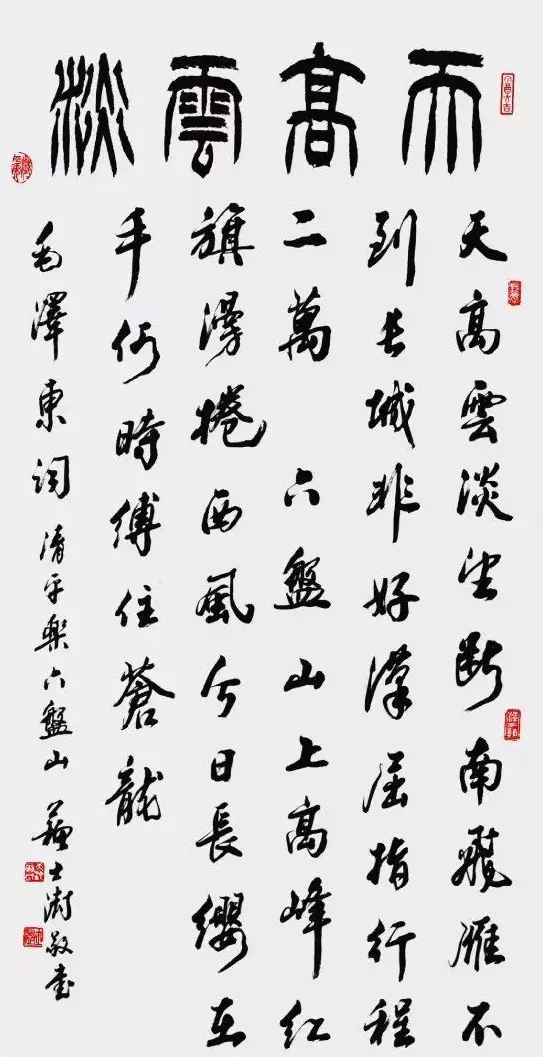 天高雲淡
天高雲淡望断南飛雁不
到长城非好漢屈指行程
二萬 六盤山上高峰红
旗漫捲西風今日長纓在
手何時縛住蒼龍
毛澤東詞 清平樂六盤山 蘇士澍敬書